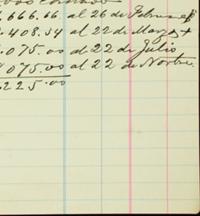 .666.66 al 26 de Febrero
.408.34 al 22 de Marzo
.075.00 al 22 de Julio
.075.00 al 22 de Novbre
225.00